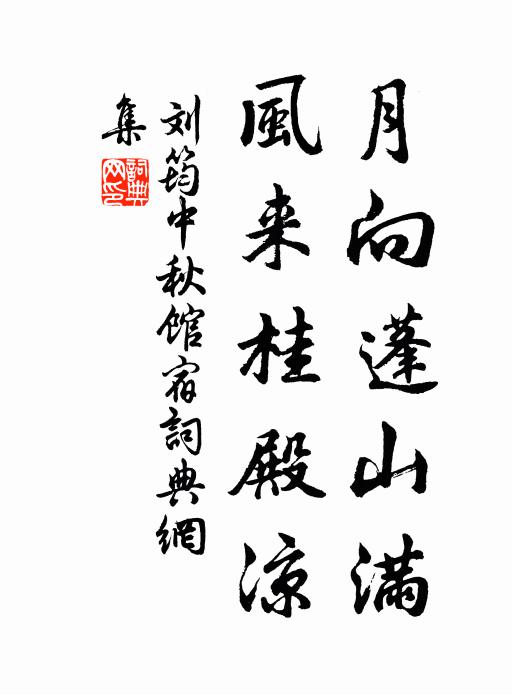 月向蓬山满
風来桂殿凉
刘筠中秋馆宿詞典網
集
詞典網印